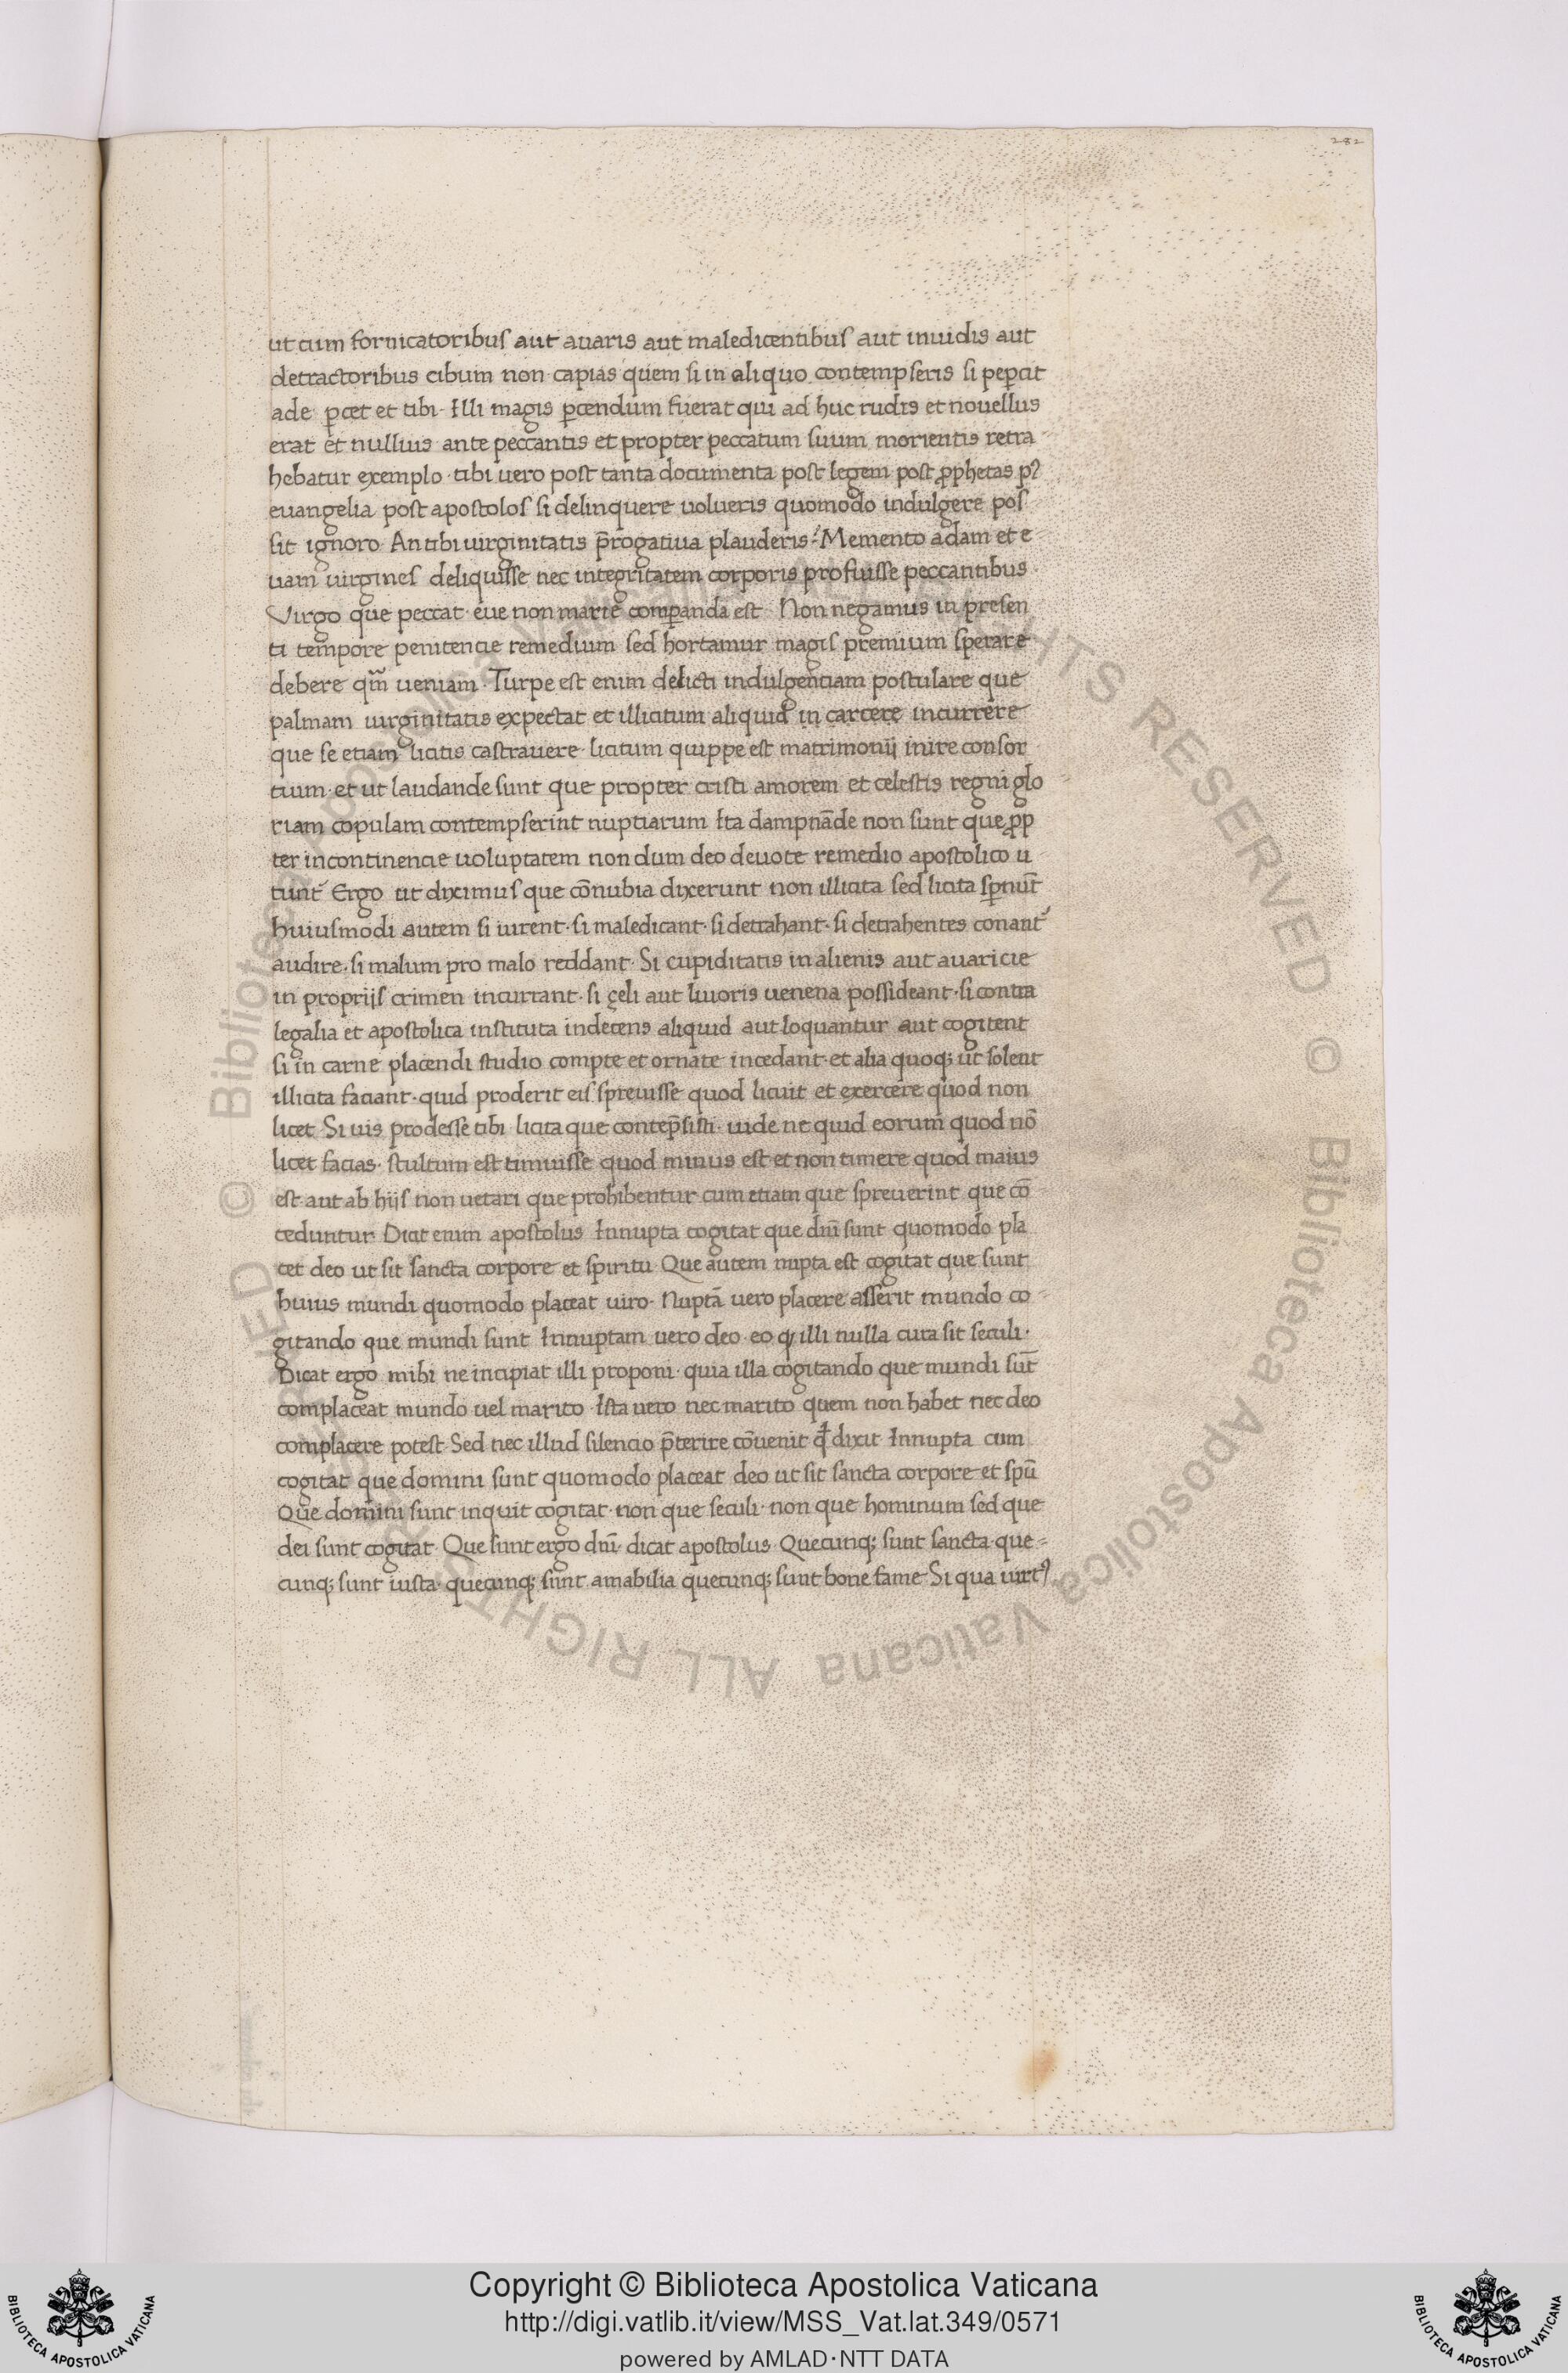 282
ut cum fornicatoribus aut avaris aut maledicentibus aut inuidis aut
detractoribus cibum non capias quem si in aliquo contempseris si pepcit
ade p̱cet et tibi · Illi magis p̱cendum fuerat qui ad huc rudis et nouellus
erat et nullius ante peccantis et propter peccatum suum morientis retra
hebatur exemplo · tibi uero post tanta documenta post legem post ꝓphetas pꝰ
euangelia post apostolos si delinquere uolueris quomodo indulgere pos
sit ignoro · An tibi uirginitatis p̄rogatiua plauderis · Memento adam et e
uam uirgines deliquisse nec integritatem corporis profuisse peccantibus ·
Virgo que peccat · eue non marie comꝑanda est Non negamus in presen
ti tempore penitencie remedium sed hortamur magis premium sperare
debere qm̄ ueniam · Turpe est enim delicti indulgentiam postulare que
palmam uirginitatis expectat et illicitum aliquid in carcere incurrere
que se etiam licitis castrauere · licitum quippe est matrimonij inire consor
tium · et ut laudande sunt que propter cristi amorem et celestis regni glo
riam copulam contempserint nuptiarum Ita dampnāde non sunt que ꝓp
ter incontinencie uoluptatem non dum deo deuote remedio apostolico u
tunt̄ Ergo ut diximus que cōnubia dixerunt non illicita sed licita sp̱nūt
huiusmodi autem si iurent · si maledicant · si detrahant · si detrahentes conant᷑
audire · si malum pro malo reddant · Si cupiditatis in alienis aut auaricie
in proprijs crimen incurrant · si çeli aut liuoris uenena possideant · si contra
legalia et apostolica instituta indecens aliquid aut loquantur aut cogitent
si in carne placendi studio compte et ornate incedant · et alia quoqꝫ ut solent
illicita faciant · quid proderit eis spreuisse quod licuit et exercere quod non
licet Si uis prodesse tibi licita que contep̄sisti · uide ne quid eorum quod nō
licet facias · stultum est timuisse quod minus est et non timere quod maius
est · aut ab hijs non uetari que prohibentur cum etiam que spreuerint que cō
ceduntur · Dicit enim apostolus Innupta cogitat que dn̄i sunt quomodo pla
cet deo ut sit sancta corpore et spiritu · Que autem nupta est cogitat que sunt
huius mundi quomodo placeat uiro · Nuptā uero placere asserit mundo co
gitando que mundi sunt Innuptam uero deo · eo ꝙ illi nulla cura sit seculi ·
Dicat ergo mihi ne incipiat illi proponi · quia illa cogitando que mundi sūt
complaceat mundo uel marito · Ista uero nec marito quem non habet nec deo
complacere potest · Sed nec illud silencio p̄terire cōuenit qđ dixit Innupta cum
cogitat que domini sunt quomodo placeat deo ut sit sancta corpore et spū
Que domini sunt inquit cogitat · non que seculi · non que hominum sed que
dei sunt cogitat · Que sunt ergo dn̄i · dicat apostolus · Quecunqꝫ sunt sancta · que
cunqꝫ sunt iusta · quecunqꝫ sunt amabilia quecunqꝫ sunt bone fame · Si qua uirtꝰ
© Biblioteca Apostolica Vaticana ALL RIGHTS RESERVED © Biblioteca Apostolica Vaticana ALL RIGHTS RESERVED
Copyright © Biblioteca Apostolica Vaticana
http://digi.vatlib.it/view/MSS_Vat.lat.349/0571
powered by AMLAD·NTT DATA
BIBLIOTECA APOSTOLICA VATICANA
BIBLIOTECA APOSTOLICA VATICANA